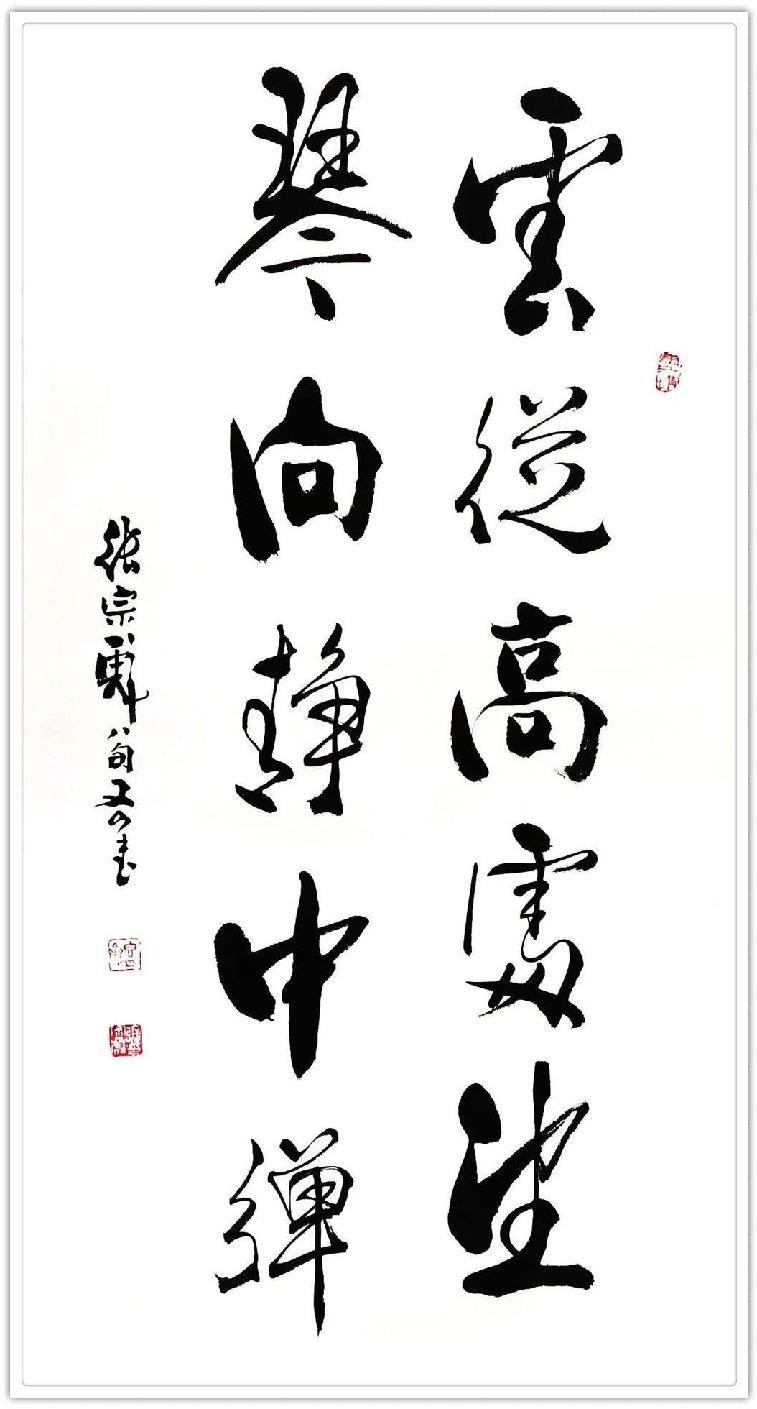 雲從高處望
琴向靜中彈
張宗彪八旬又四書